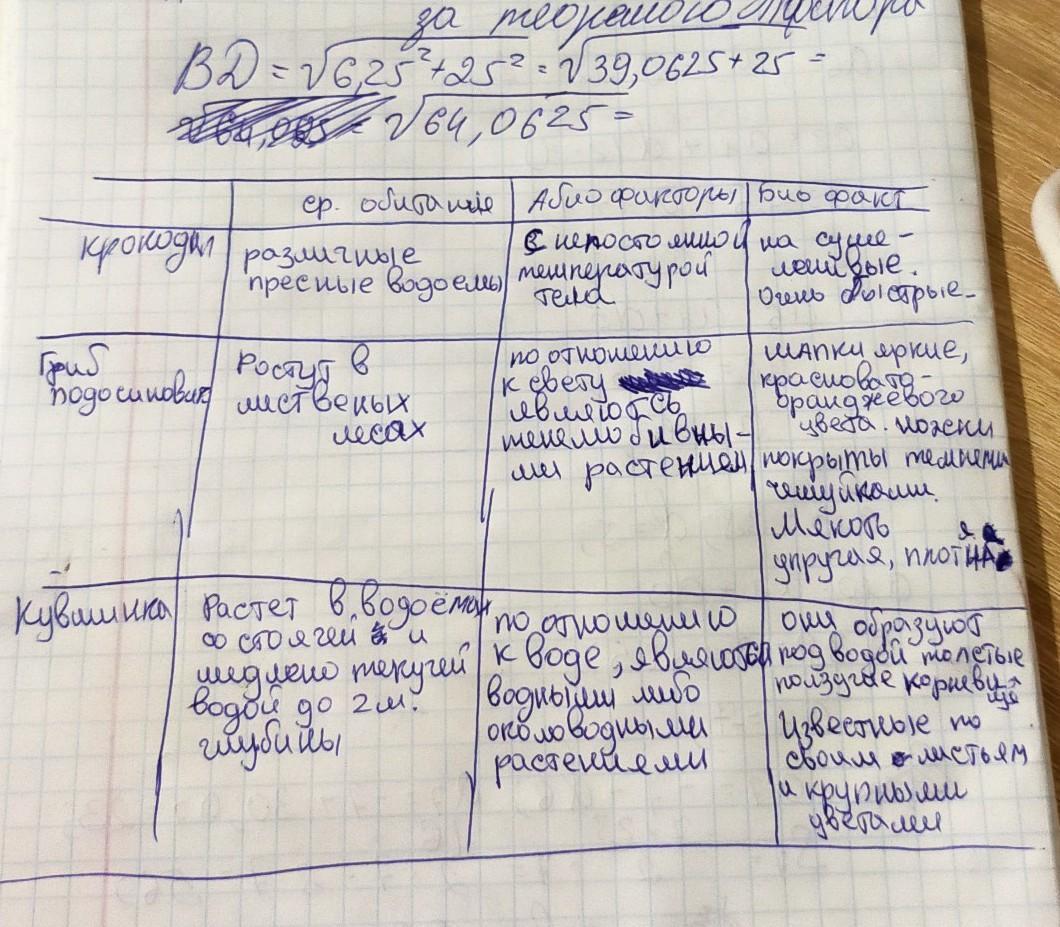 за теоремою Піфагора
BD = √6,25² + 25² = √39,0625 + 25 =
= √64,0625 =
ср. обитание
Абио факторы
Био факт
крокодил
различные
пресные водоемы
С непостоянной
температурой
тела
на суше -
ленивые.
Очень быстрые -
Гриб
подосиновик
Ростут в
лиственых
лесах
по отношению
к свету
являются
тенелюбивны-
ми растением
шапки яркие,
красновато-
оранджевого
цвета. ножки
покрыты темнеми
чешуйками.
Мякоть
упругая, плотная
Кувшинка
Растет в водоёмах
со стоячей и
медлено текучей
водой до 2 м.
глубины
по отношению
к воде, являются
водными либо
околоводными
растениями
они образуют
под водой толстые
ползучие корневи-
ще
Известные по
своим листьям
и крупными
цветами